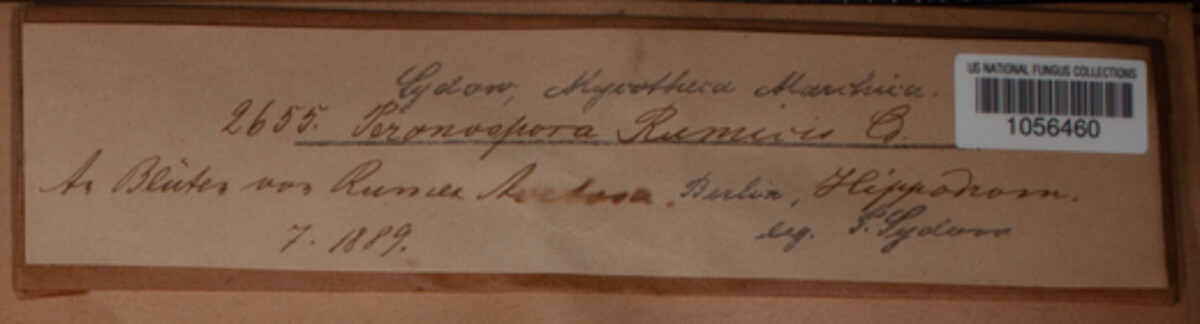 Sydow, Mycotheca Marchica.
2655. Peronospora Rumicis C.
An Blüten von Rumex Acetosa. Berlin, Hippodrom.
7. 1889. leg. P. Sydow
US NATIONAL FUNGUS COLLECTIONS
1056460